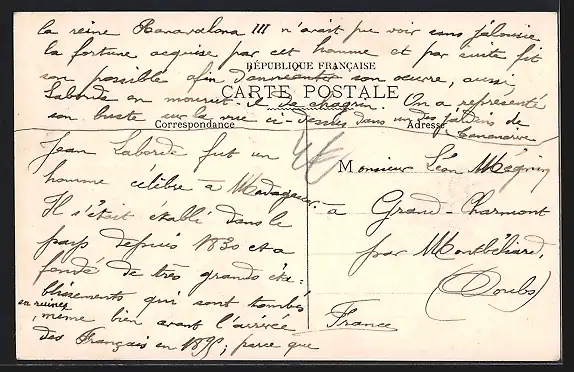 la reine Ranavalona III n'avait pu voir sans jalousie
la fortune acquise par cet homme et par suite fit
RÉPUBLIQUE FRANÇAISE
son possible afin d'anneantir son œuvre, aussi
CARTE POSTALE
Laborde en mourut-il de chagrin. On a représenté
son buste sur la vue ci-dessus dans un des jardins de
Tananarive
Correspondance
Adresse
Jean Laborde fut un
homme célèbre à Madagascar.
Il s'était établi dans le
pays depuis 1830 et a
fondé de très grands éta-
blissements qui sont tombés
en ruines
, même bien avant l'arrivée
des Français en 1895; parce que
Monsieur Léon Mégnin
à Grand-Charmont
par Montbéliard,
(Doubs)
France